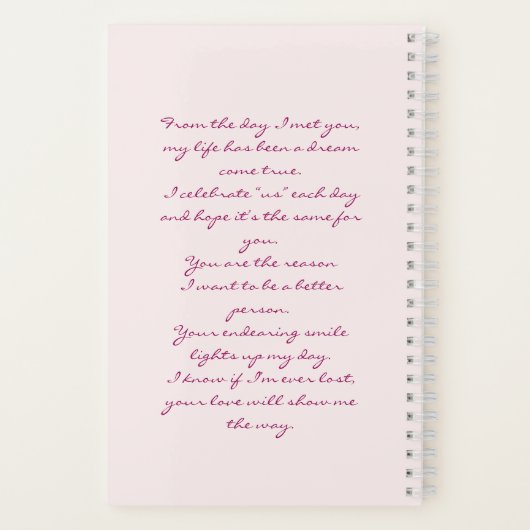 From the day I met you,
my life has been a dream
come true.
I celebrate “us” each day
and hope it's the same for
you.
You are the reason
I want to be a better
person.
Your endearing smile
lights up my day.
I know if I'm ever lost,
your love will show me
the way.